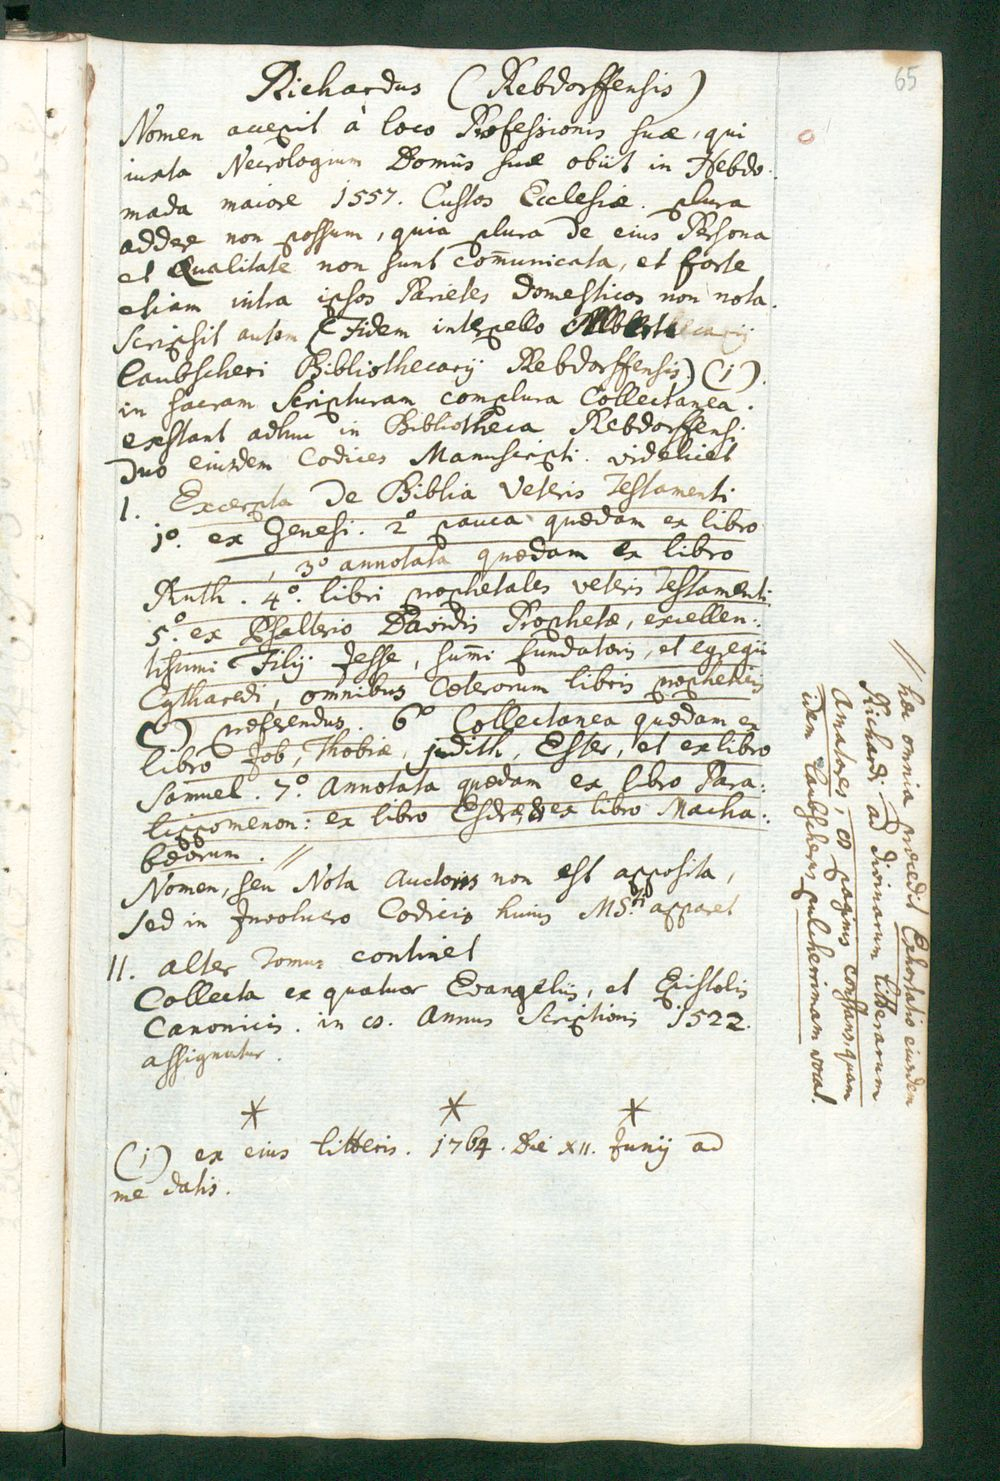 65
Richardus (Rebdorffensis)
Nomen accepit à loco Professionis suæ, qui
iuxta Necrologium Domûs suæ obiit in Hebdo-
mada maiore 1557. Custos Ecclesiæ. plura
addere non possum, quia plura de eius Persona
et Qualitate non sunt com̄unicata, et forte
etiam intra ipsos Parietes domesticos non nota.
scripsit autem (Fidem interpello
Caubscheri Bibliothecarij Rebdorffensis) (1).
in sacram Scripturam complura Collectanea.
exstant adhuc in Bibliotheca Rebdorffensi
Duo eiusdem Codices Manuscripti. videlicet
1. Excerpta de Biblia Veteris Testamenti
1º. ex Genesi. 2º pauca quædam ex libro
, 3º annotata quædam ex libro
Ruth. 4º. libri prophetales veteris Testamenti.
5º. ex Psalterio Davidis Prophetæ, excellen:
tissimi Filij Jesse, sum̄i fundatoris, et egregii
Cytharedi, omnibus cæterorum libris propheticis
præferendus. 6º Collectanea quædam ex
libro Job, Thobiæ, judith, Ester, et ex libro
Samuel. 7º. Annotata quædam ex libro Para:
lippomenon: ex libro Esdræ, & ex libro Macha:
bæorum. //
Nomen, seu Nota Auctoris non est apposita,
sed in Involucro Codicis huius MS.ti apparet
11. alter Tomus continet
Collecta ex quatuor Evangeliis, et Epistolis
Canonicis. in eo. Annus Scriptionis 1522.
assignatur.
* * *
(1) ex eius litteris. 1764. Die XII. Junij ad
me datis.
// hæc omnia præcedit Exhortatio eiusdem
Richardi ad divinarum litterarum
Amatores, paginis constans, quam
idem Caubscherus pulcherrimam vocat.